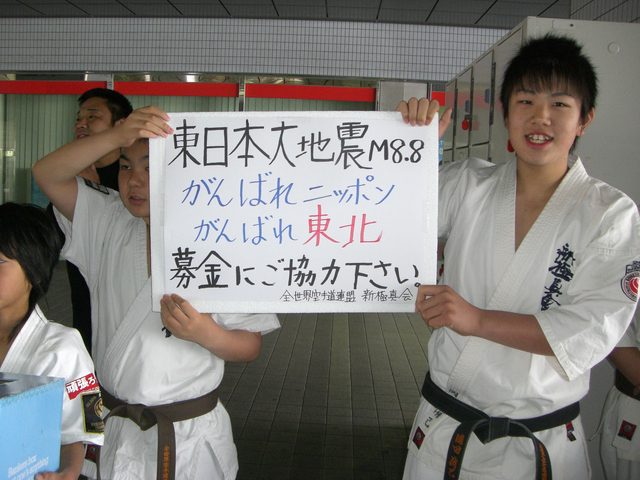 東日本大地震M8.8
がんばれニッポン
がんばれ東北
募金にご協力下さい。
全世界空手道連盟 新極真会
新極真会
頑張ろ